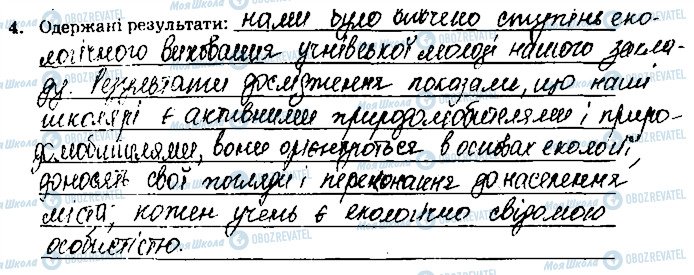 4. Одержані результати: нами було вивчено ступінь еко-
логічного виховання учнівської молоді нашого закла-
ду. Результати дослідження показали, що наші
школярі є активними природолюбителями і приро-
долюбителями, вони орієнтуються в основах екології,
доносять свої погляди і переконання до населення
міста; кожен учень є екологічно свідомою
особистістю.